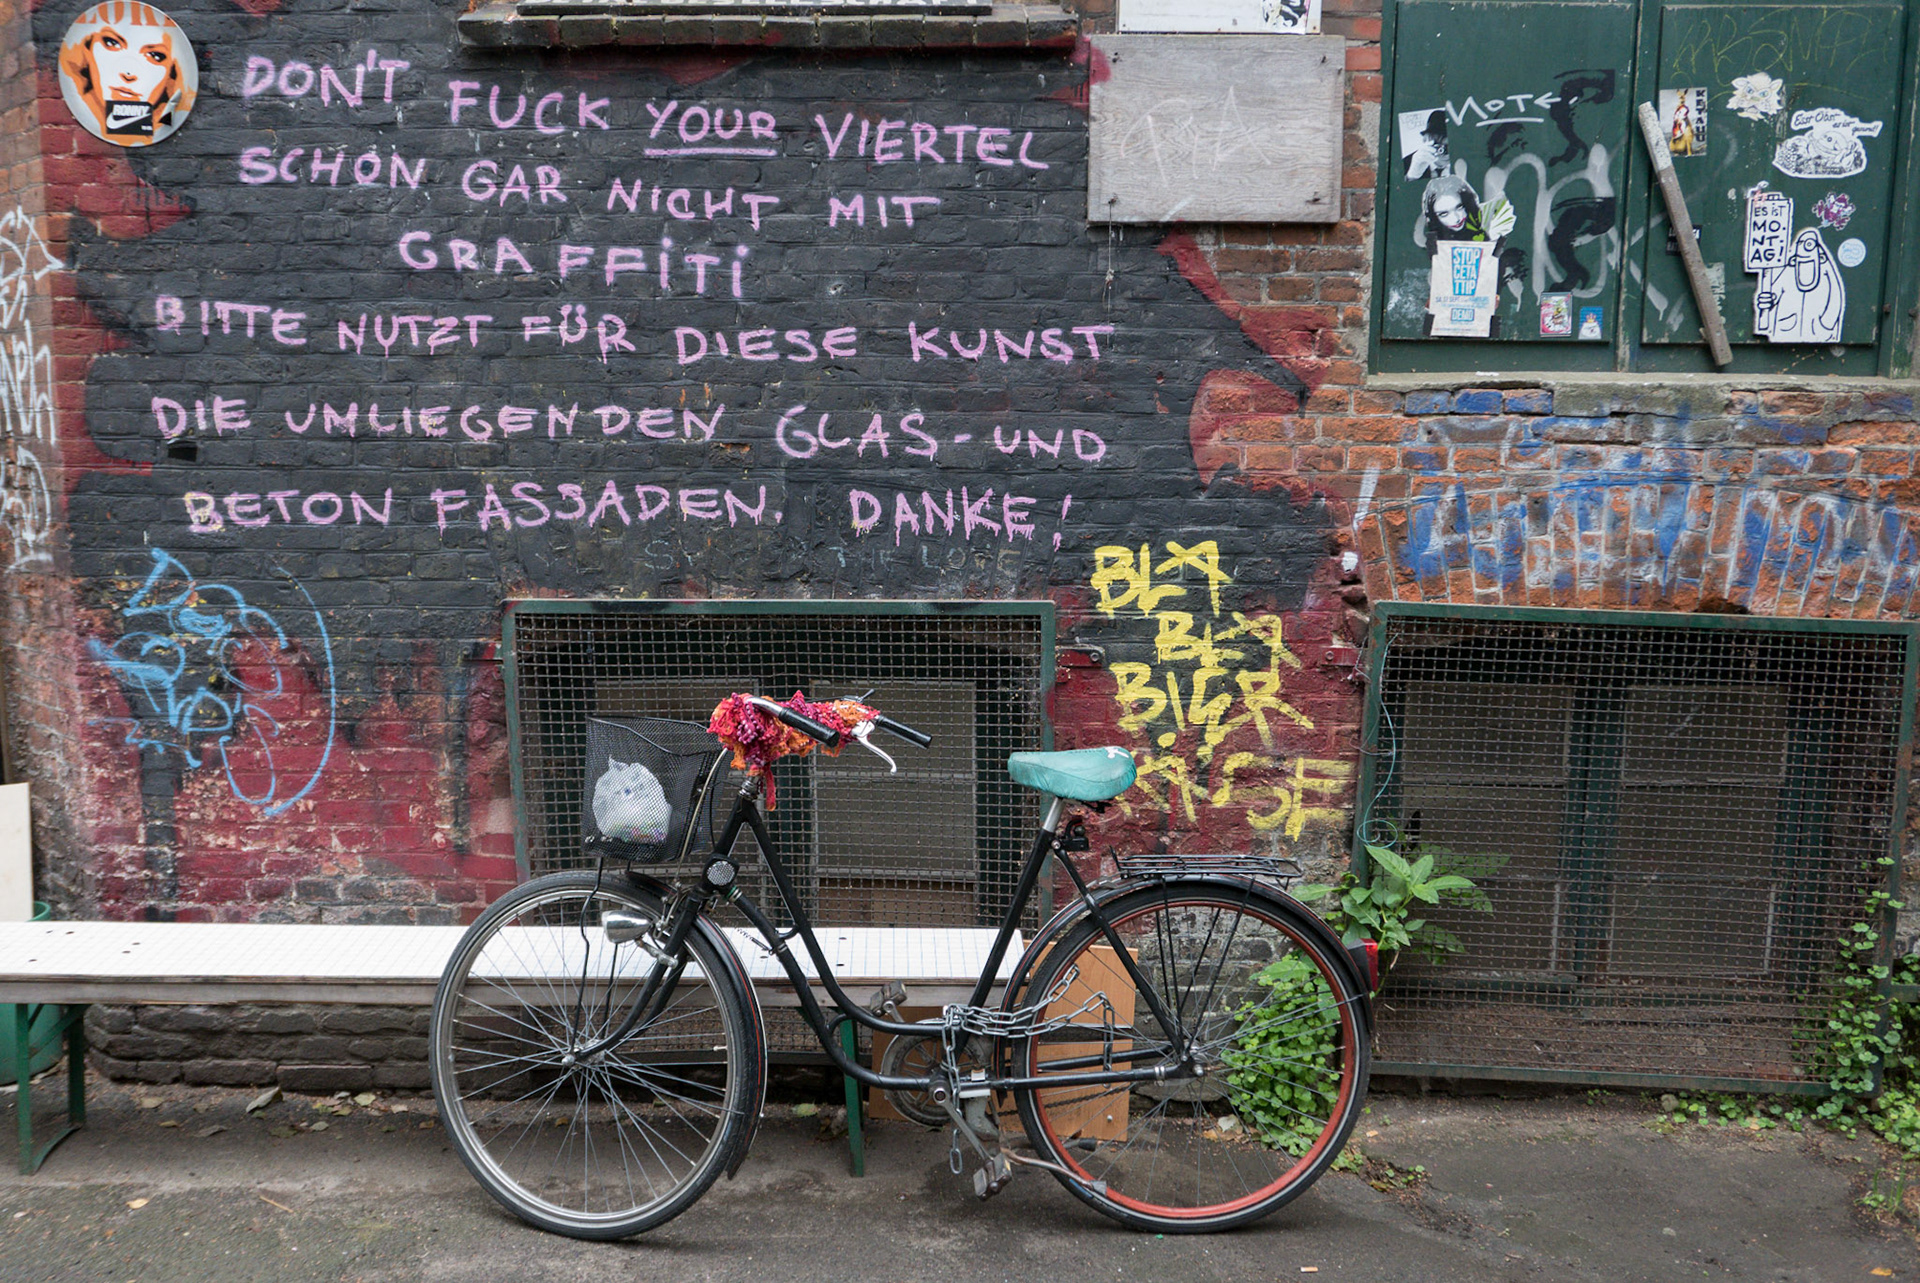 RONNY
DON'T FUCK YOUR VIERTEL
SCHON GAR NICHT MIT
GRAFFITI
BITTE NUTZT FÜR DIESE KUNST
DIE UMLIEGENDEN GLAS-UND
BETON FASSADEN. DANKE!
BLA
BLA
NOT
Esst Obst
STOP
CETA
TTIP
DEMO
ES IST
MO.
NT.
AG!